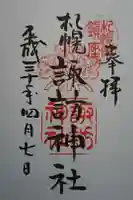 奉拝
札幌諏訪神社
平成三十年四月七日